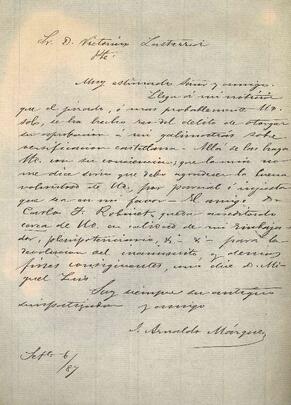 Sr. D. Victorino Lastarria
Pte.
Muy estimado Señor y amigo.
Llega á mi noticia
que el jurado, ó mas probablemente Ud.
solo, se ha hecho reo del delito de otorgar
su aprobacion á mi galimatías sobre
versificacion castellana. Allá se las haya
Ud. con su conciencia; que la mia no
me dice sino que debo agradecer la buena
voluntad de Ud., por parcial é injusta
que sea en mi favor. El amigo Dn
Carlos F. Robinet, queda acreditado
cerca de Ud. en calidad de mi Embaja-
dor, plenipotenciario, &. &. para la
devolucion del manuscrito y demas
fines consiguientes, como dice D. Mi-
guel Luis
Soy siempre su antiguo
y amigo
J. Arnaldo Márquez
Setbe 6/87